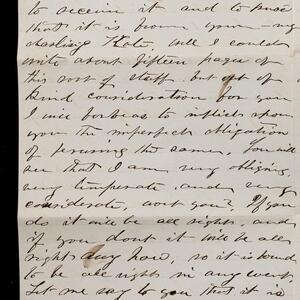 to receive it and to know
that it is from your — my
darling Kate, well I could
write about fifteen pages of
this sort of stuff but out of
kind consideration for you
I will forbear to inflict upon
you the imperfect obligation
of perusing the same. You will
see that I am very obliging,
very temperate and very
considerate, aont you? If you
do it will be all right, and
if you dont it will be all
right any how, so it is bound
to be all right in any event
Let me say to you that it is